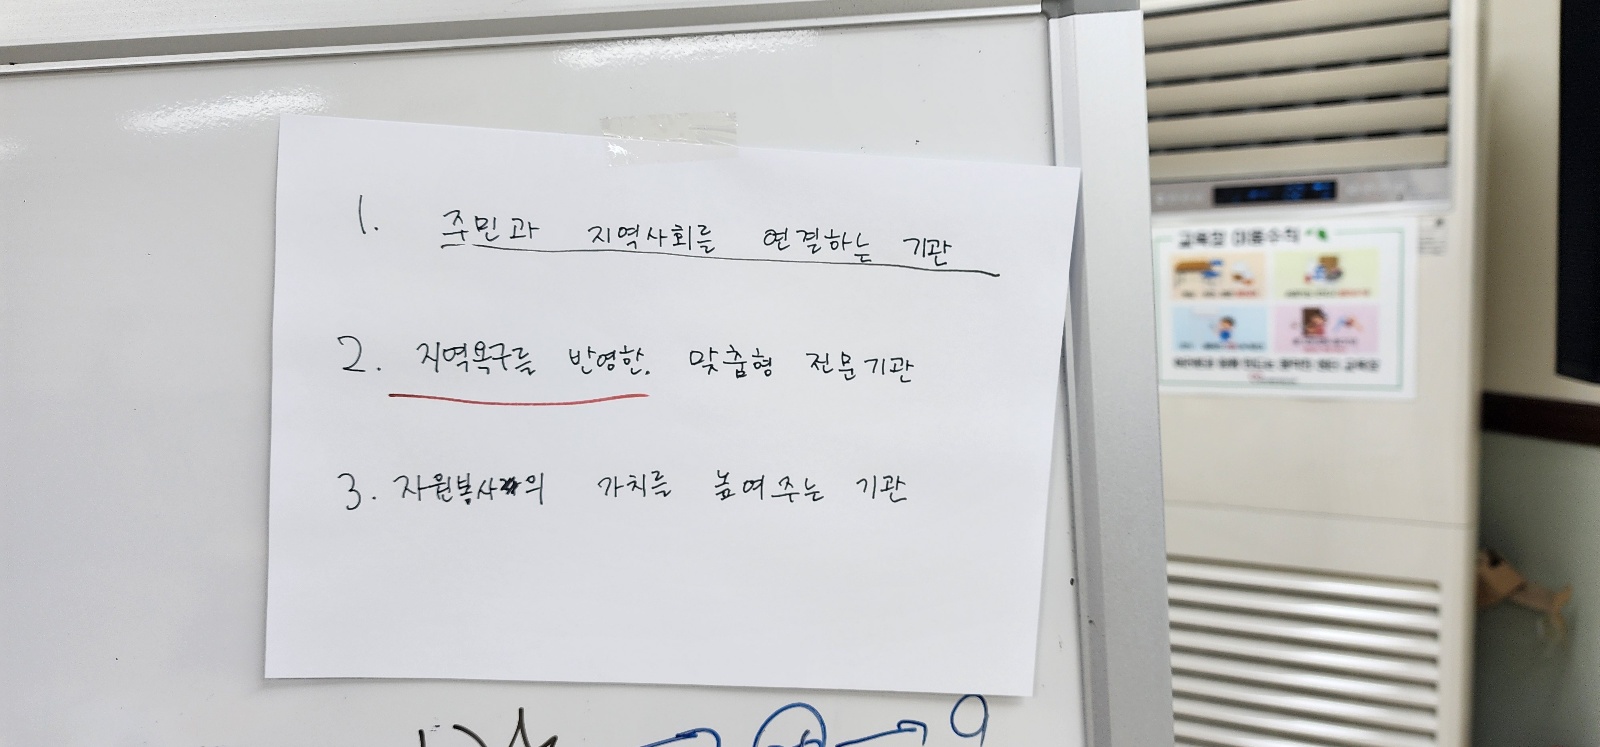 1. 주민과 지역사회를 연결하는 기관
2. 지역욕구를 반영한. 맞춤형 전문기관
3. 자원봉사의 가치를 높여주는 기관
교육장 이용수칙
9